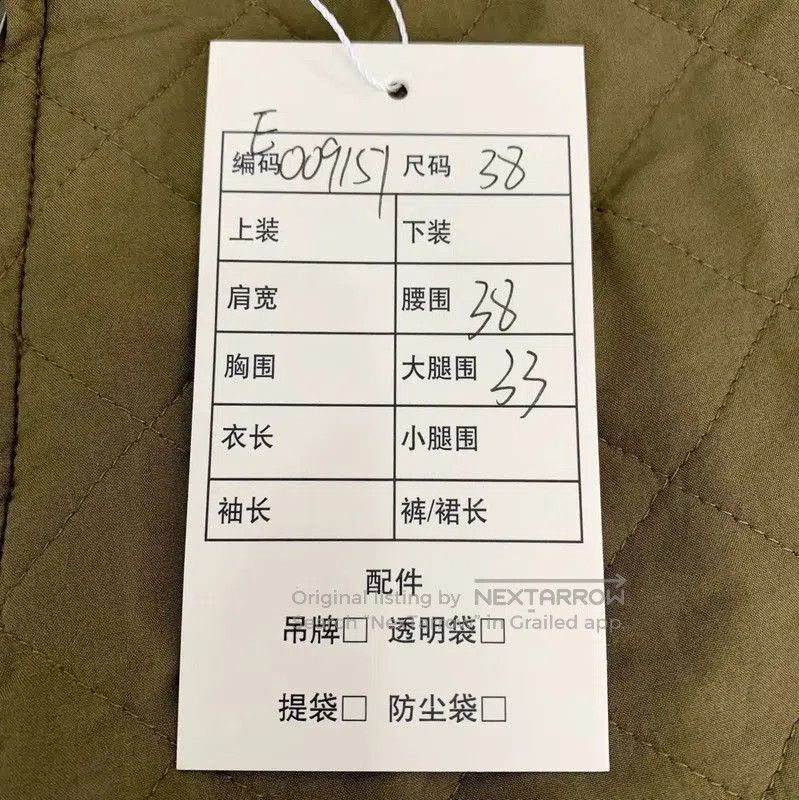 编码 E009151 尺码 38
上装 下装
肩宽 腰围 38
胸围 大腿围 33
衣长 小腿围
袖长 裤/裙长
配件
Original listing by NEXTARROW
吊牌□ 透明袋□
Search "NextArrow" in Grailed app.
提袋□ 防尘袋□